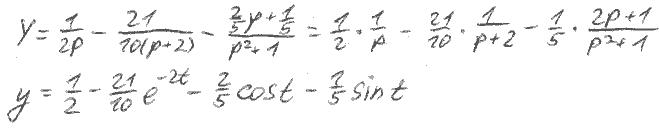 Y = \frac{1}{2p} - \frac{21}{10(p+2)} - \frac{\frac{2}{5}p + \frac{1}{5}}{p^2+1} = \frac{1}{2} \cdot \frac{1}{p} - \frac{21}{10} \cdot \frac{1}{p+2} - \frac{1}{5} \cdot \frac{2p+1}{p^2+1}
y = \frac{1}{2} - \frac{21}{10} e^{-2t} - \frac{2}{5} cos t - \frac{1}{5} sin t